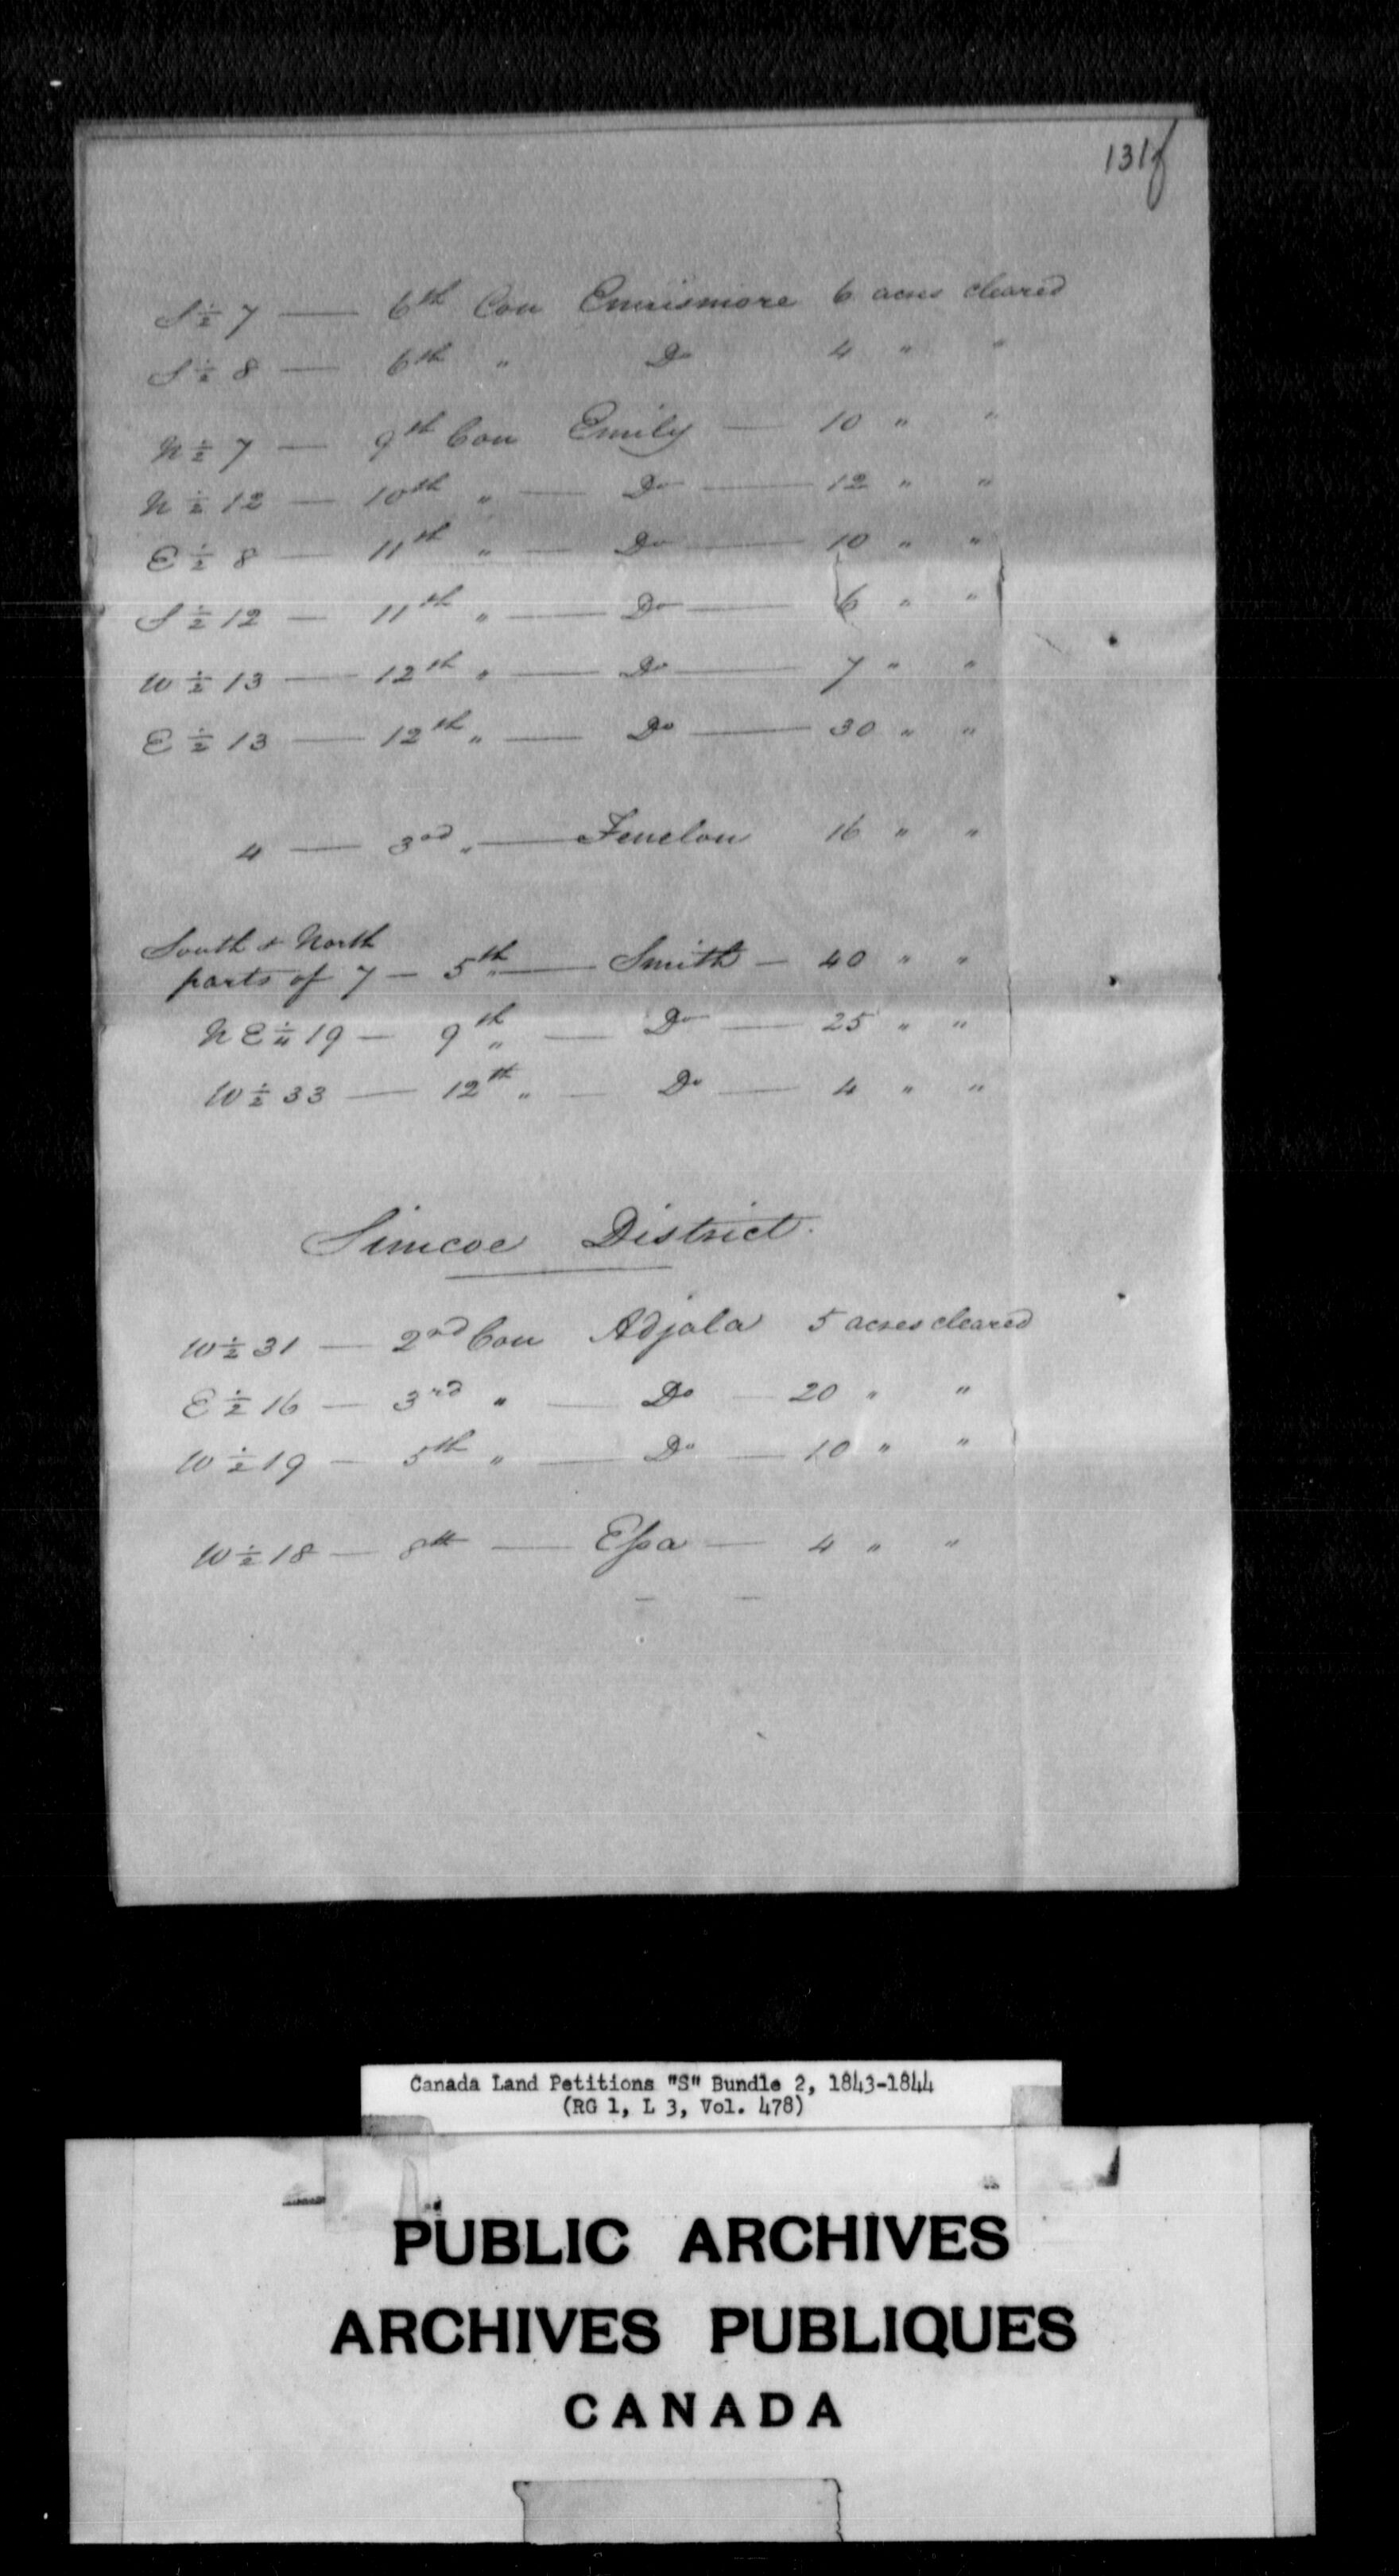 131f
S ½ 7 — 6th Con Ennismore 6 acres cleared
S ½ 8 — 6th " Do 4 " "
N ½ 7 — 9th Con Emily — 10 " "
N ½ 12 — 10th " — Do — 12 " "
E ½ 8 — 11th " — Do — 10 " "
S ½ 12 — 11th " — Do — 6 " "
W ½ 13 — 12th " — Do — 7 " "
E ½ 13 — 12th " — Do — 30 " "
4 — 3rd " — Fenelon 16 " "
South & North
parts of 7 — 5th " — Smith — 40 " "
N E ¼ 19 — 9th " — Do — 25 " "
W ½ 33 — 12th " — Do — 4 " "
Simcoe District.
W ½ 31 — 2nd Con Adjala 5 acres cleared
E ½ 16 — 3rd " — Do — 20 " "
W ½ 19 — 5th " — Do — 10 " "
W ½ 18 — 8th — Essa — 4 " "
Canada Land Petitions "S" Bundle 2, 1843-1844
(RG 1, L 3, Vol. 478)
PUBLIC ARCHIVES
ARCHIVES PUBLIQUES
CANADA